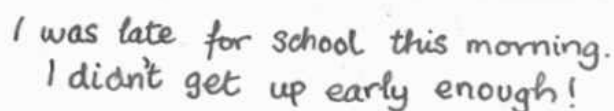 I was late for school this morning.
I didn't get up early enough!